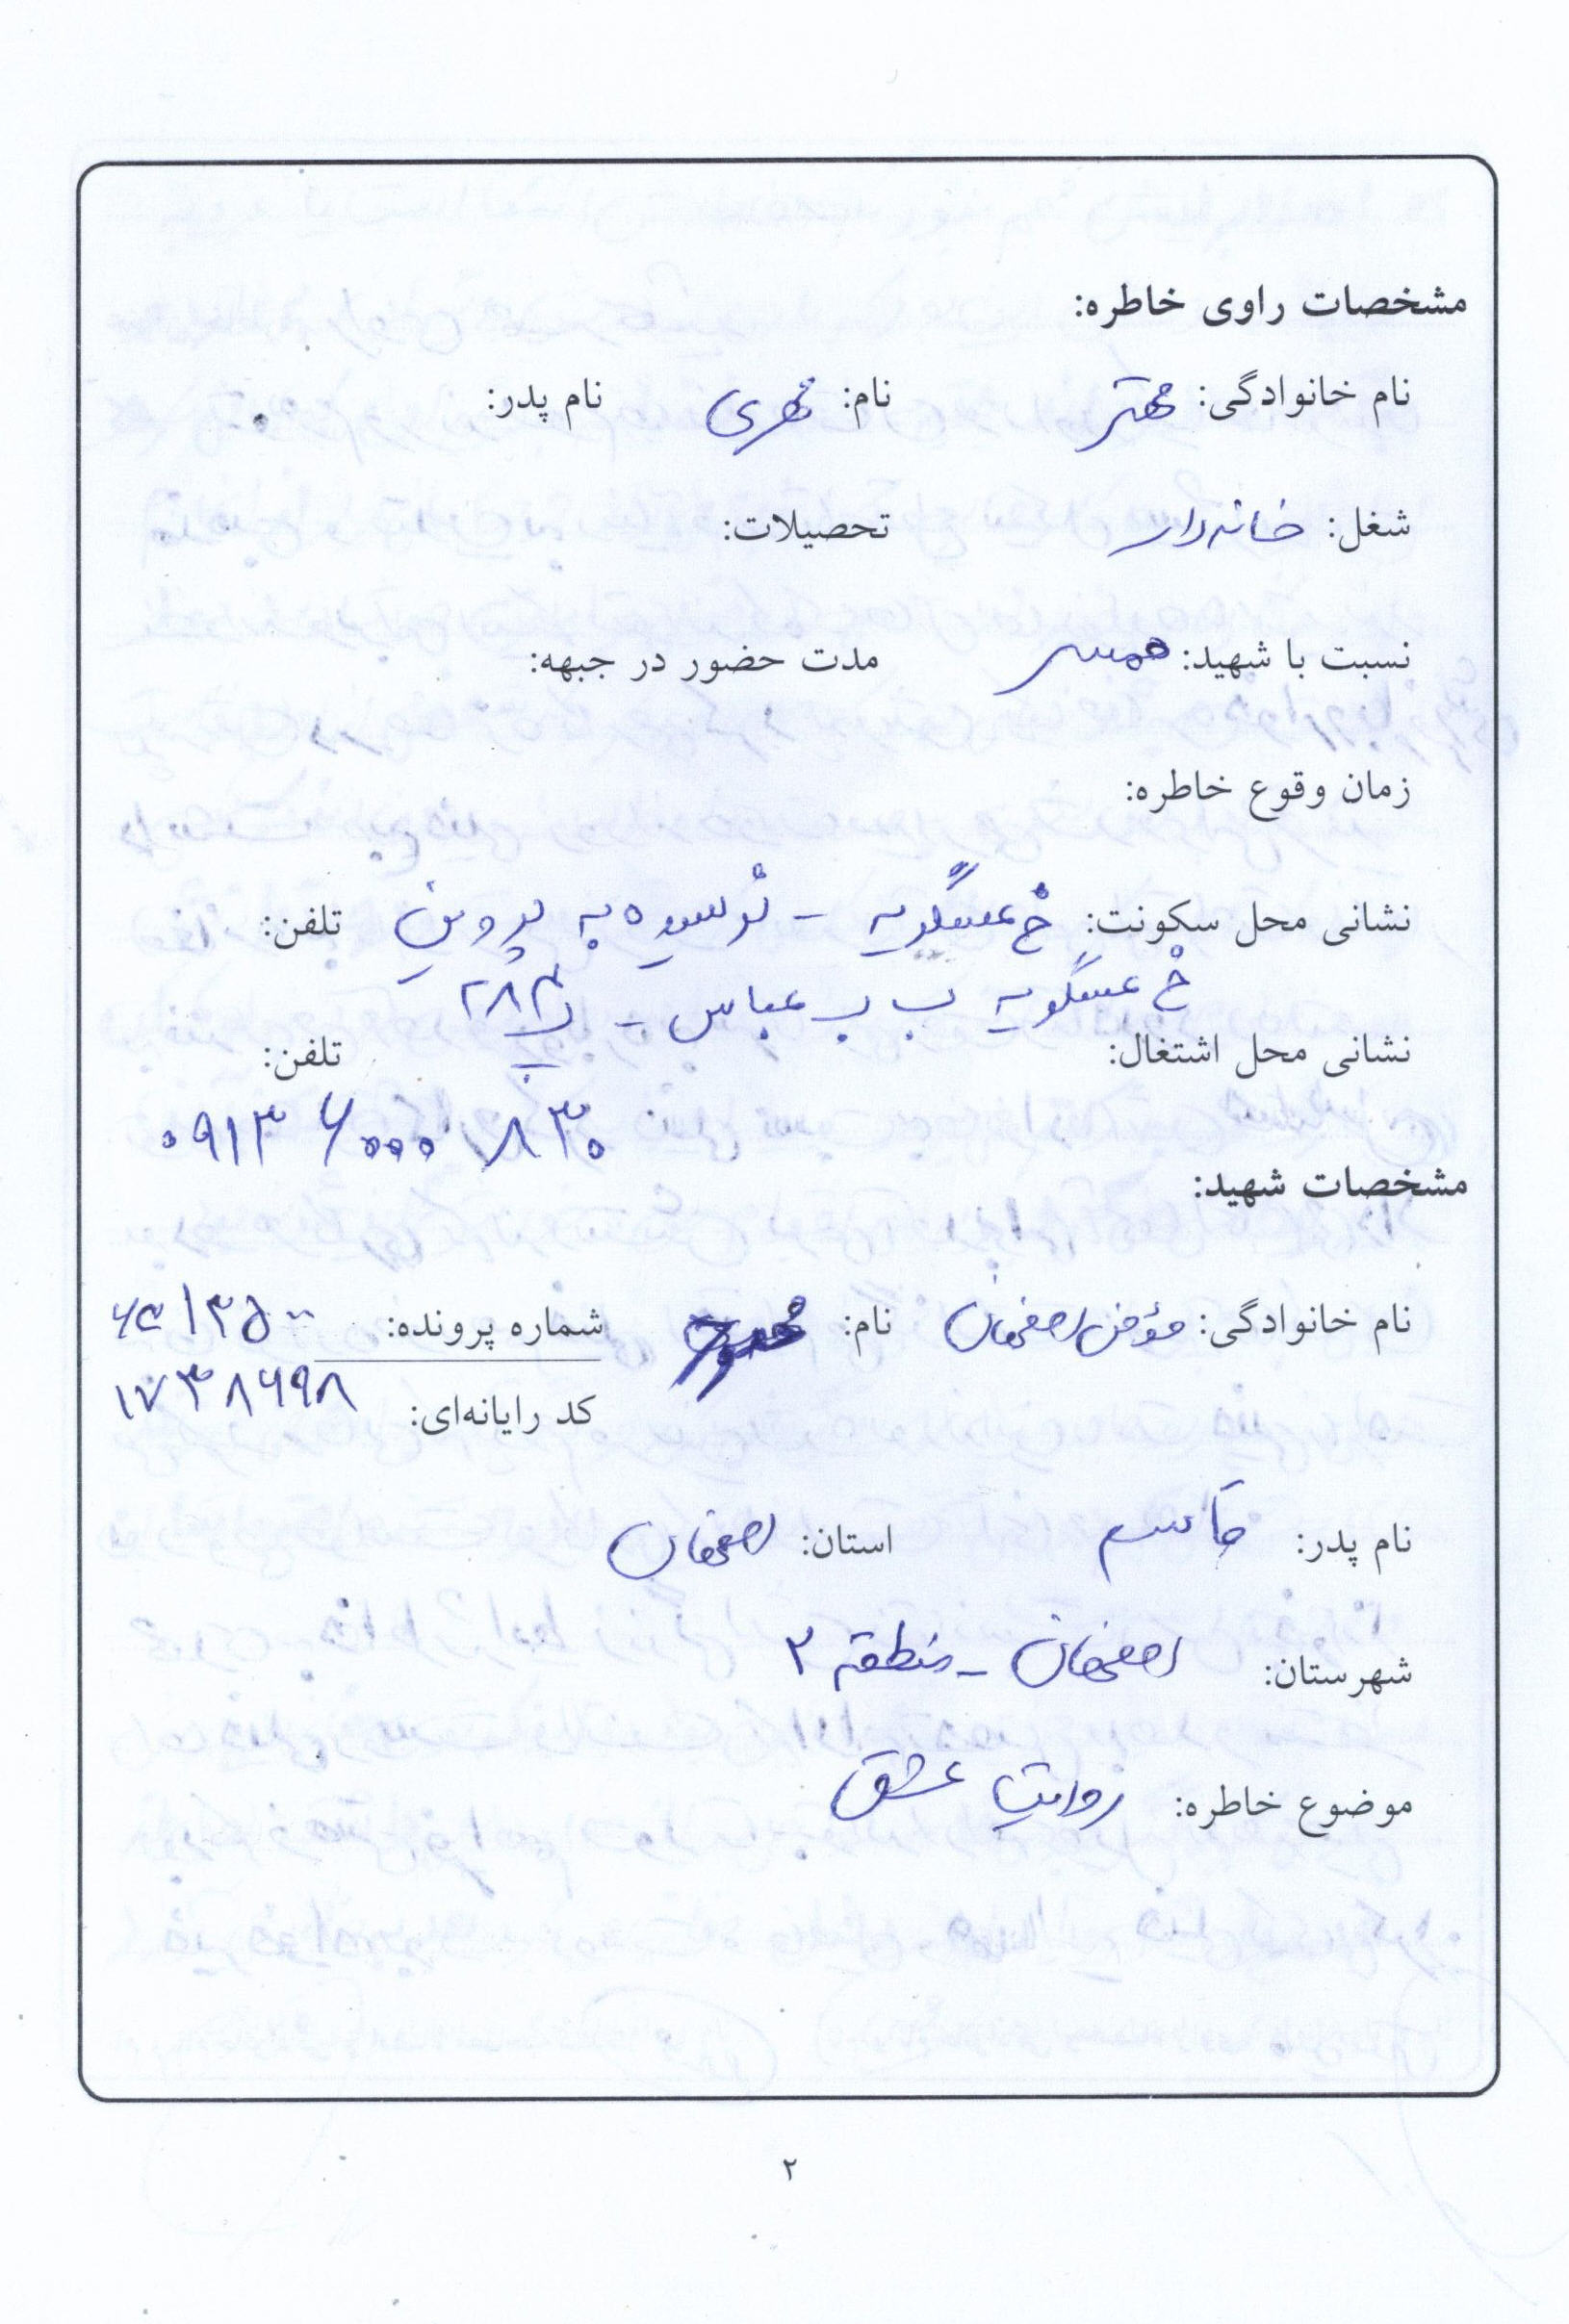 مشخصات راوی خاطره:
نام خانوادگی: مهتر نام: نام پدر:
شغل: خانه‌دار تحصیلات:
نسبت با شهید: همسر مدت حضور در جبهه:
زمان وقوع خاطره:
نشانی محل سکونت: خ عسگریه - نرسیده به پروین تلفن:
خ عسگریه ب ب عباس -
نشانی محل اشتغال: تلفن:
۰۹۱۳ ۶۰۰۰ ۸۳۰
مشخصات شهید:
نام خانوادگی: مؤمن اصفهان نام: شماره پرونده:
کد رایانه‌ای: ۱۷۳۸۶۹۸
نام پدر: قاسم استان: اصفهان
شهرستان: اصفهان - منطقه ۲
موضوع خاطره: روایت عشق
۲